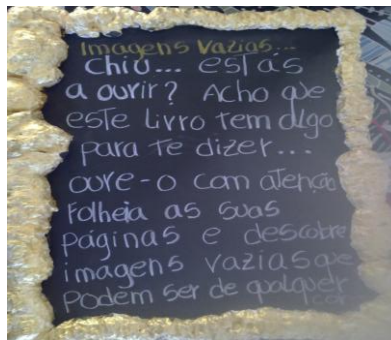 Imagens vazias...
Chiu... estás
a ouvir? Acho que
este livro tem algo
para te dizer...
ouve-o com atenção
Folheia as suas
páginas e descobre
imagens vazias que
Podem ser de qualquer
cor